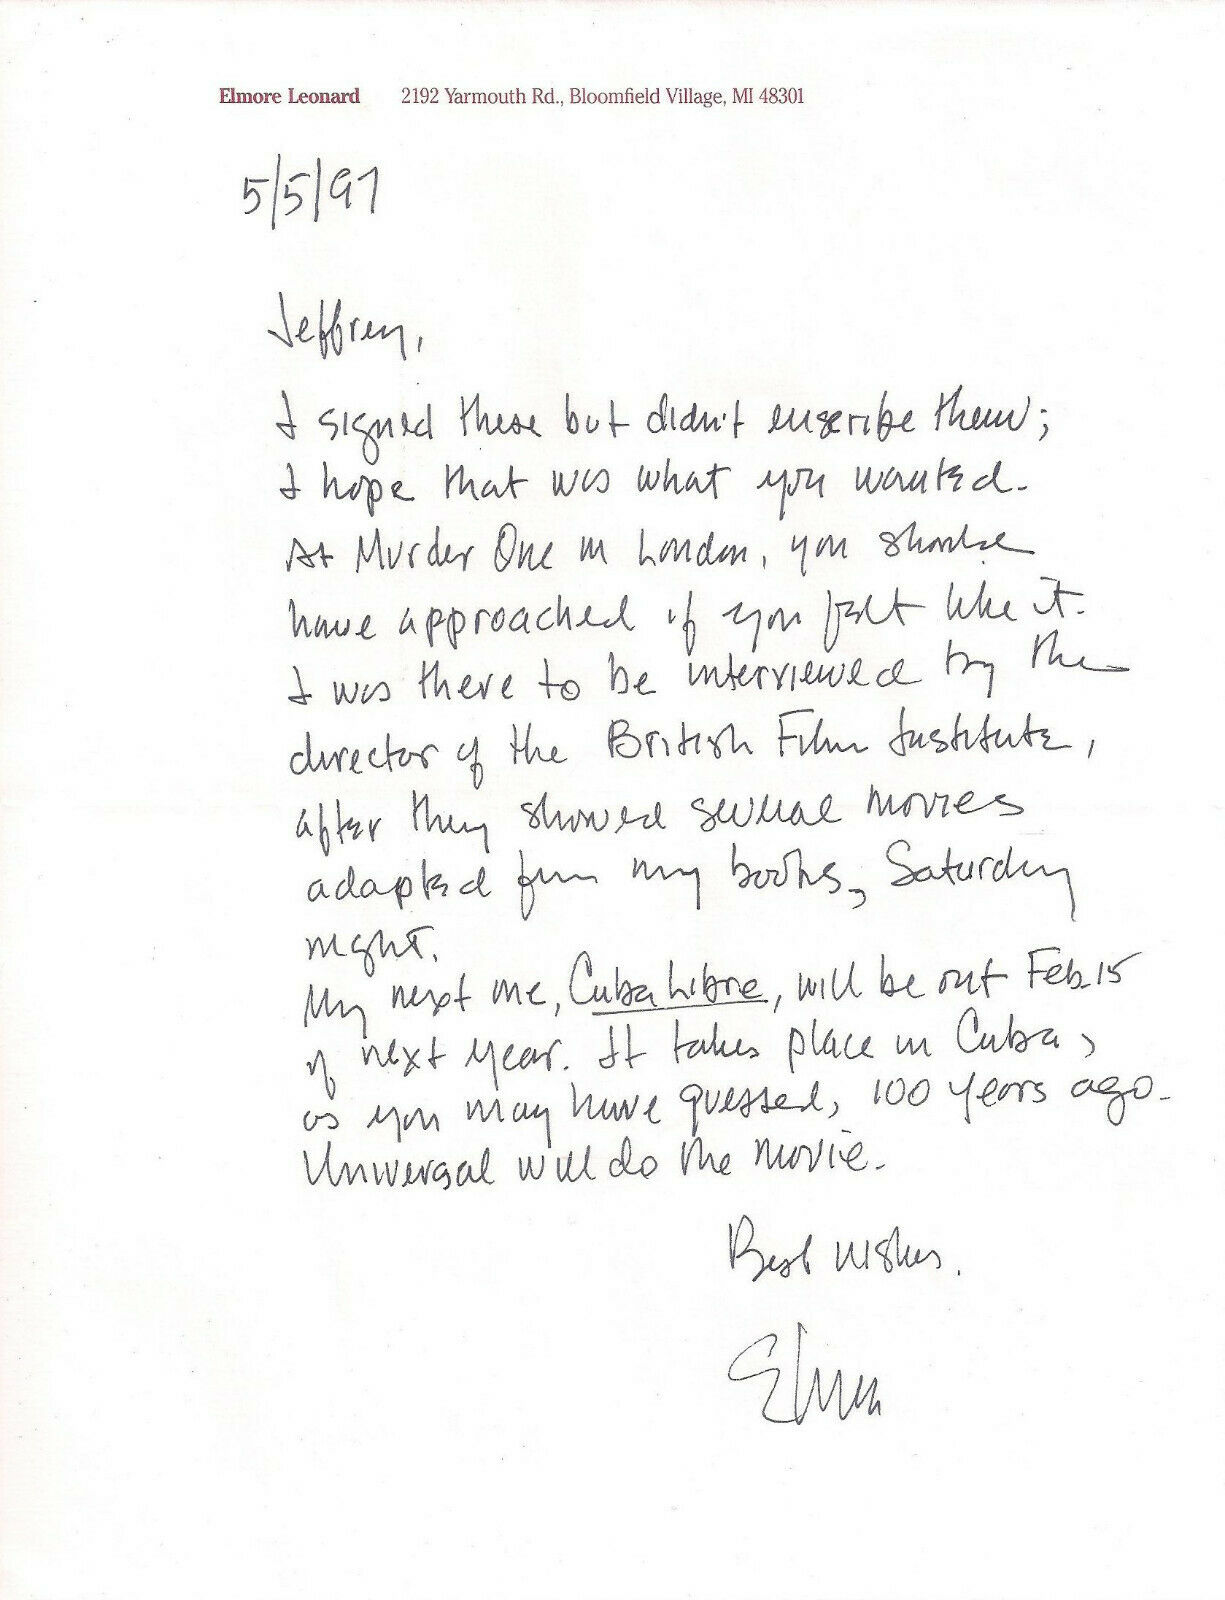 Elmore Leonard 2192 Yarmouth Rd., Bloomfield Village, MI 48301
5/5/97
Jeffrey,
I signed these but didn't enscribe them;
I hope that was what you wanted.
At Murder One in London, you should
have approached if you felt like it.
I was there to be interviewed by the
director of the British Film Institute,
after they showed several movies
adapted from my books, Saturday
night.
My next one, Cuba Libre, will be out Feb. 15
of next year. It takes place in Cuba,
as you may have guessed, 100 years ago.
Universal will do the movie.
Best wishes.
Elmore